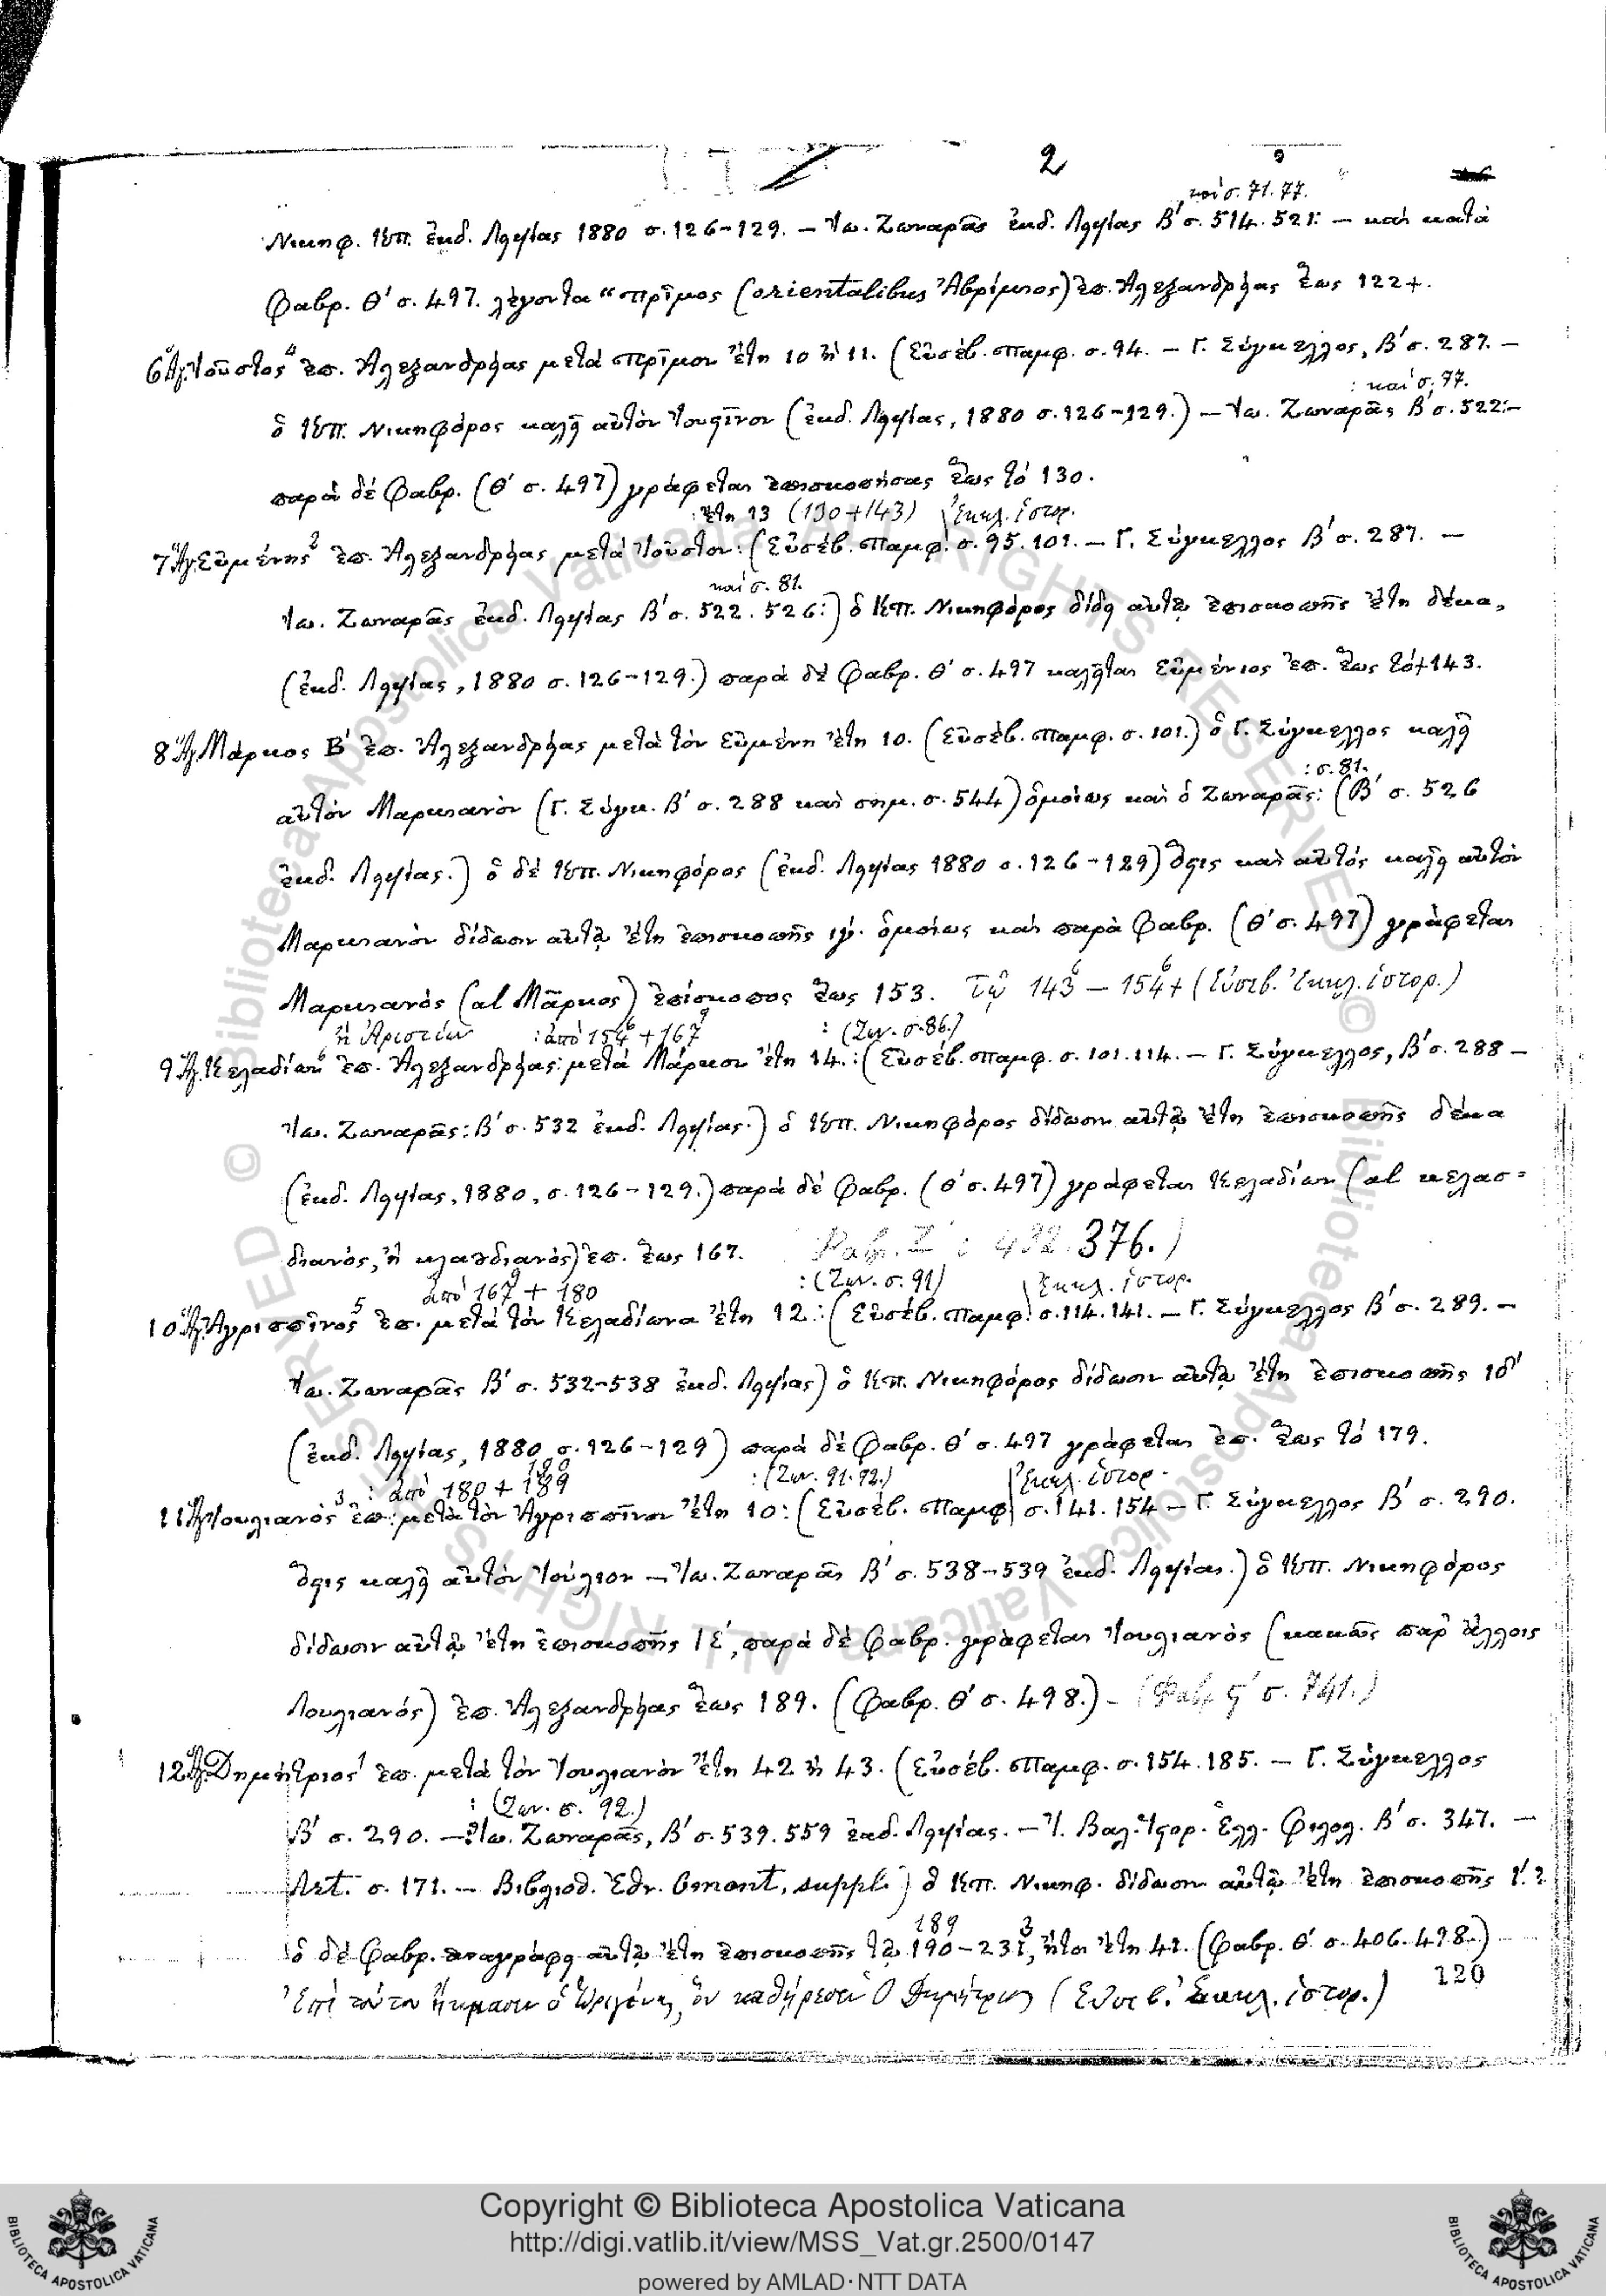 2
καὶ σ. 71. 77.
Νικηφ. Κπ. ἐκδ. Λειψίας 1880 σ. 126-129. – Ἰω. Ζωναρᾶς ἐκδ. Λειψίας Β΄ σ. 514. 521: – καὶ κατὰ
Φαβρ. Θ΄ σ. 497. λέγοντα "Πρῖμος (orientalibus Ἀβρίμιος) ἐπ. Ἀλεξανδρείας ἕως 122+.
6 Ἅγ. Ἰοῦστος 4 ἐπ. Ἀλεξανδρείας μετὰ Πρῖμον ἔτη 10 ἢ 11. (Εὐσέβ. Παμφ. σ. 94. – Γ. Σύγκελλος, Β΄ σ. 287. –
: καὶ σ. 77.
ὁ Κπ. Νικηφόρος καλεῖ αὐτὸν Ἰουστῖνον (ἐκδ. Λειψίας, 1880 σ. 126-129.) – Ἰω. Ζωναρᾶς Β΄ σ. 522:–
παρὰ δὲ Φαβρ. (Θ΄ σ. 497) γράφεται ἐπισκοπήσας ἕως τὸ 130.
: ἔτη 13 (130+143) Ἐκκλ. ἱστορ.
7 Ἅγ. Εὐμένης 2 ἐπ. Ἀλεξανδρείας μετὰ Ἰοῦστον: (Εὐσέβ. Παμφ. σ. 95. 101. – Γ. Σύγκελλος Β΄ σ. 287. –
καὶ σ. 81.
Ἰω. Ζωναρᾶς ἐκδ. Λειψίας Β΄ σ. 522. 526:) ὁ Κπ. Νικηφόρος δίδει αὐτῷ ἐπισκοπῆς ἔτη δέκα,
(ἐκδ. Λειψίας, 1880 σ. 126-129.) παρὰ δὲ Φαβρ. Θ΄ σ. 497 καλεῖται Εὐμένιος ἐπ. ἕως τὸ +143.
8 Ἅγ. Μάρκος Β΄ ἐπ. Ἀλεξανδρείας μετὰ τὸν Εὐμένη ἔτη 10. (Εὐσέβ. Παμφ. σ. 101.) ὁ Γ. Σύγκελλος καλεῖ
: σ. 81.
αὐτὸν Μαρκιανὸν (Γ. Σύγκ. Β΄ σ. 288 καὶ σημ. σ. 544) ὁμοίως καὶ ὁ Ζωναρᾶς: (Β΄ σ. 526
ἐκδ. Λειψίας.) ὁ δὲ Κπ. Νικηφόρος (ἐκδ. Λειψίας 1880 σ. 126-129) ὅστις καὶ αὐτὸς καλεῖ αὐτὸν
Μαρκιανὸν δίδωσιν αὐτῷ ἔτη ἐπισκοπῆς ιγ΄. ὁμοίως καὶ παρὰ Φαβρ. (Θ΄ σ. 497) γράφεται
Μαρκιανὸς (al Μᾶρκος) ἐπίσκοπος ἕως 153. Τῷ 143 – 154+ (Εὐσεβ. Ἐκκλ. ἱστορ.)
ἢ Ἀριστίων : ἀπὸ 154 + 167 : (Ζων. σ. 86.)
9 Ἅγ. Κελαδίων 6 ἐπ. Ἀλεξανδρείας: μετὰ Μάρκον ἔτη 14.: (Εὐσέβ. Παμφ. σ. 101. 114. – Γ. Σύγκελλος, Β΄ σ. 288 –
Ἰω. Ζωναρᾶς: Β΄ σ. 532 ἐκδ. Λειψίας.) ὁ Κπ. Νικηφόρος δίδωσιν αὐτῷ ἔτη ἐπισκοπῆς δέκα
(ἐκδ. Λειψίας, 1880, σ. 126-129.) παρὰ δὲ Φαβρ. (Θ΄ σ. 497) γράφεται Κελαδίων (al κελασ=
διανός, ἢ κλαυδιανός) ἐπ. ἕως 167. 376.)
ἀπὸ 167 + 180 : (Ζων. σ. 91) Ἐκκλ. ἱστορ.
10 Ἅγ. Ἀγριππῖνος 5 ἐπ. μετὰ τὸν Κελαδίωνα ἔτη 12.: (Εὐσέβ. Παμφ. σ. 114. 141. – Γ. Σύγκελλος Β΄ σ. 289. –
Ἰω. Ζωναρᾶς Β΄ σ. 532-538 ἐκδ. Λειψίας) ὁ Κπ. Νικηφόρος δίδωσιν αὐτῷ ἔτη ἐπισκοπῆς ιδ΄
(ἐκδ. Λειψίας, 1880 σ. 126-129) παρὰ δὲ Φαβρ. Θ΄ σ. 497 γράφεται ἐπ. ἕως τὸ 179.
: ἀπὸ 180 + 189 : (Ζων. 91. 92.) Ἐκκλ. ἱστορ.
11 Ἅγ. Ἰουλιανὸς 3 ἐπ: μετὰ τὸν Ἀγριππῖνον ἔτη 10: (Εὐσέβ. Παμφ σ. 141. 154 – Γ. Σύγκελλος Β΄ σ. 290.
ὅστις καλεῖ αὐτὸν Ἰούλιον – Ἰω. Ζωναρᾶς Β΄ σ. 538-539 ἐκδ. Λειψίας.) ὁ Κπ. Νικηφόρος
δίδωσιν αὐτῷ ἔτη ἐπισκοπῆς ιε΄, παρὰ δὲ Φαβρ. γράφεται Ἰουλιανὸς (κακῶς παρ' ἄλλοις
Λουλιανός) ἐπ. Ἀλεξανδρείας ἕως 189. (Φαβρ. Θ΄ σ. 498.) – (Φαβρ ς΄ σ. 741.)
12 Ἅγ. Δημήτριος 1 ἐπ. μετὰ τὸν Ἰουλιανὸν ἔτη 42 ἢ 43. (Εὐσέβ. Παμφ. σ. 154. 185. – Γ. Σύγκελλος
: (Ζων. σ. 92.)
Β΄ σ. 290. – Ἰω. Ζωναρᾶς, Β΄ σ. 539. 559 ἐκδ. Λειψίας. – Ἰ. Βαλ. Ἱστορ. Ἑλλ. Φιλολ. Β΄ σ. 347. –
σ. 171. – Βιβλιοθ. Ἐθν. Omont, suppl.) ὁ Κπ. Νικηφ. δίδωσιν αὐτῷ ἔτη ἐπισκοπῆς
189 3
ὁ δὲ Φαβρ. ἀναγράφει αὐτῷ ἔτη ἐπισκοπῆς τῷ 190-231, ἤτοι ἔτη 42. (Φαβρ. Θ΄ σ. 406. 498.)
Ἐπὶ τούτου ἤκμασεν ὁ Ὠριγένης, ὃν καθῄρεσεν ὁ Δημήτριος (Εὐσεβ. Ἐκκλ. ἱστορ.) 120
Copyright © Biblioteca Apostolica Vaticana
http://digi.vatlib.it/view/MSS_Vat.gr.2500/0147
powered by AMLAD·NTT DATA